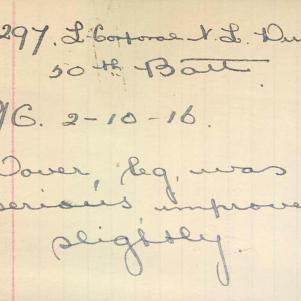 297. L. Corporal N. L. Du
50th Batt
/6. 2-10-16.
Dover, leg, was
serious improve
slightly.